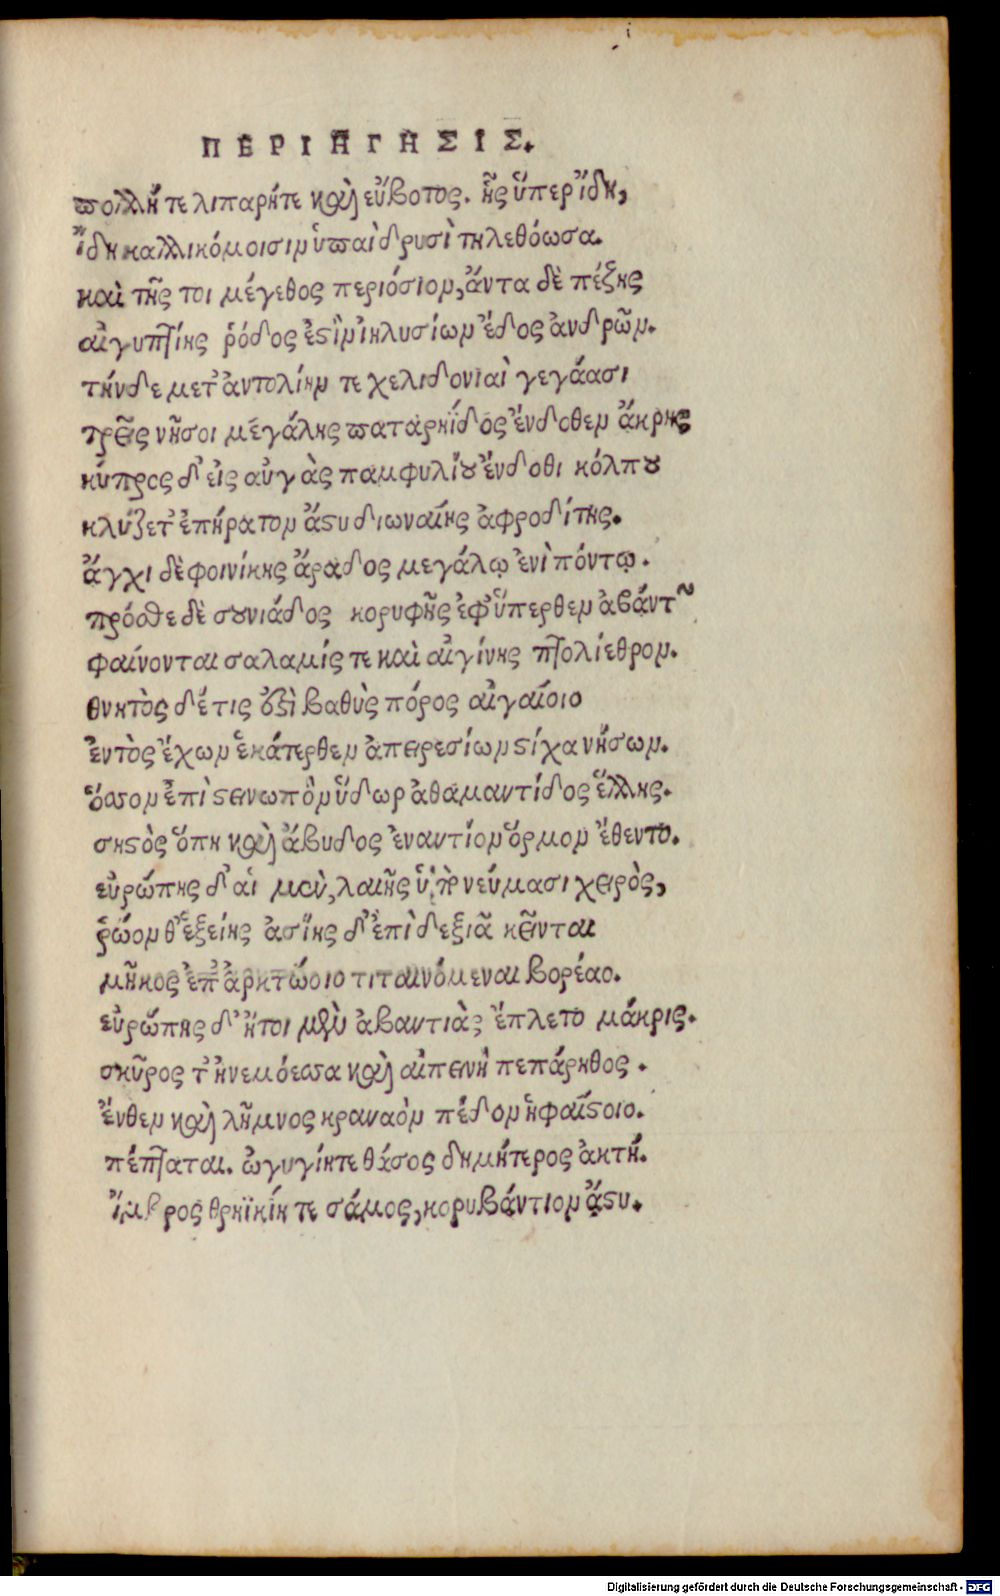 ΠΕΡΙΗΓΗΣΙΣ.
πολλή τε λιπαρήτε καὶ εὔβοτος. ἧς ὕπερ ἴδη,
ἴδη καλλικόμοισιν ὑπαὶ δρυσὶ τηλεθόωσα.
καὶ τῆς τοι μέγεθος περιόσιον, ἄντα δὲ πέζης
αἰγυπτίης ῥόδος ἐστὶν ἰηλυσίων ἕδος ἀνδρῶν.
τήνδε μετ' ἀντολίην τε χελιδονίαι γεγάασι
τρεῖς νῆσοι μεγάλης παταρηΐδος ἔνδοθεν ἄκρης
κύπρος δ' εἰς αὐγὰς παμφυλίου ἔνδοθι κόλπου
κλύζετ' ἐπήρατον ἄστυ διωναίης ἀφροδίτης.
ἄγχι δὲ φοινίκης ἄραδος μεγάλῳ ἐνὶ πόντῳ.
πρόσθε δὲ σουνιάδος κορυφῆς ἐφ' ὕπερθεν ἀβάντων
φαίνονται σαλαμίς τε καὶ αἰγίνης πτολίεθρον.
θνητὸς δέ τις ἐστὶ βαθὺς πόρος αἰγαίοιο
ἐντὸς ἔχων ἑκάτερθεν ἀπειρεσίων στίχα νήσων.
ὅσσον ἐπὶ στεινωπὸν ὕδωρ ἀθαμαντίδος ἕλλης.
σηστὸς ὅπη καὶ ἄβυδος ἐναντίον ὅρμον ἔθεντο.
εὐρώπης δ' αἱ μὲν, λαιῆς ὑπὸ νεύμασι χειρὸς,
ῥώον θ' ἑξείης ἀσίης δ' ἐπὶ δεξιᾶ κεῖνται
μῆκος ἐπ' ἀρκτώοιο τιταινόμεναι βορέαο.
εὐρώπης δ' ἤτοι μὲν ἀβαντιὰς ἔπλετο μάκρις.
σκῦρος τ' ἠνεμόεσσα καὶ αἰπεινὴ πεπάρηθος.
ἔνθεν καὶ λῆμνος κραναὸν πέδον ἡφαίστοιο.
πέπταται. ὠγυγίητε θάσος δημήτερος ἀκτή.
ἴμβρος θρηϊκίη τε σάμος, κορυβάντιον ἄστυ.
Digitalisierung gefördert durch die Deutsche Forschungsgemeinschaft - DFG